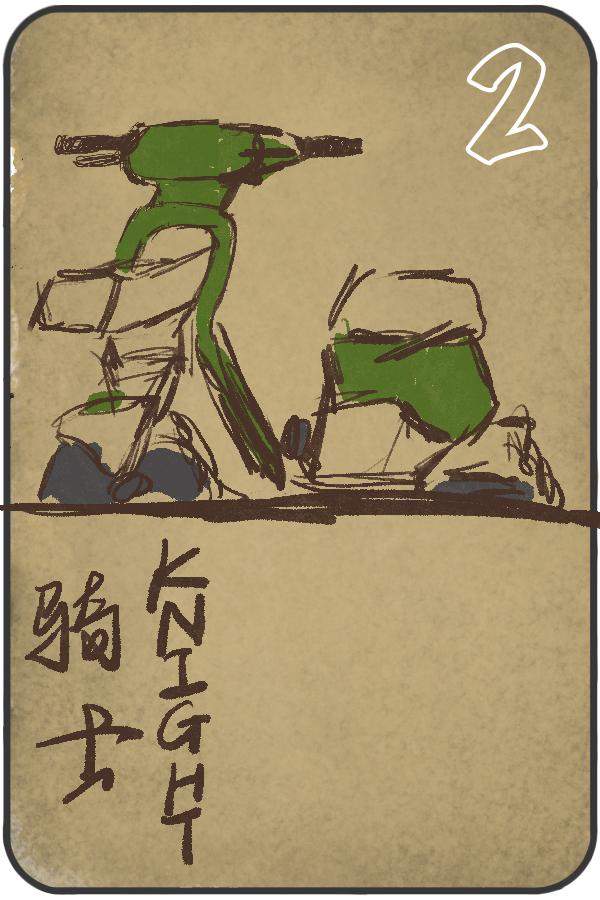 2
騎士
KNIGHT